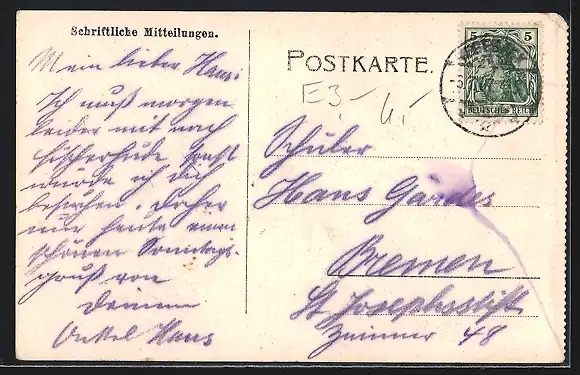 Schriftliche Mitteilungen.
POSTKARTE.
5 5
DEUTSCHES REICH
E3,-
4,-
Mein lieber Hans!
Ich muß morgen
leider mit nach
Fischerhude sonst
würde ich dich
besuchen. Daher
nur heute einen
schönen Sonntags-
gruß von
Deinem
Onkel Hans
Schüler
Hans Gardes
Bremen
St Josephsstift
Zimmer 48